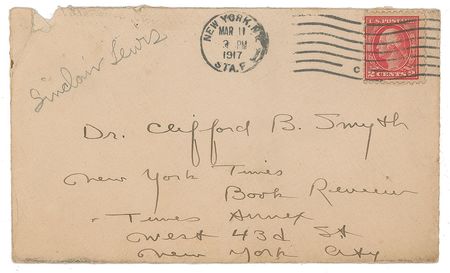 Sinclair Lewis
NEW YORK, N.Y.
MAR 11
3 PM
1917
STA. F
U.S. POSTAGE
2 CENTS 2
Dr. Clifford B. Smyth
New York Times
Book Review
Times Annex
West 43d St
New York City